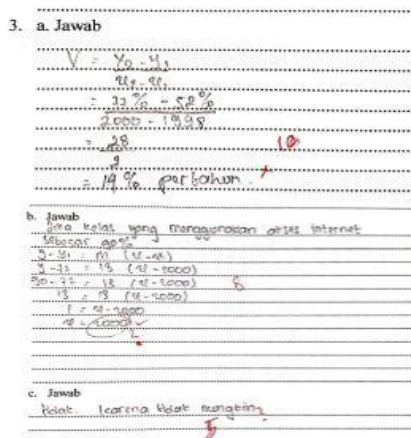 3. a. Jawab
V = y₂ - y₁
x₂ - x₁
= 77% - 52%
2000 - 1998
= 28
2
10
= 14% pertahun.
b. Jawab
kelas yang menggunakan akses internet
sebesar 90%
y - y₁ = m (x - x₁)
y - 77 = 13 (x - 2000)
90 - 77 = 13 (x - 2000)
8
13 = 13 (x - 2000)
1 = x - 2000
c. Jawab
tidak. karena tidak mungkin
5